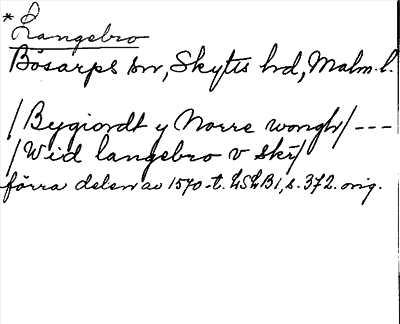 * Langebro
Bösarps sn, Skytts hd, Malm. l.
/Bygiordt y Norre wongh/ ---
/Wid langebro v skī/
förra delen av 1570-t. LSLB1, s. 372. orig.